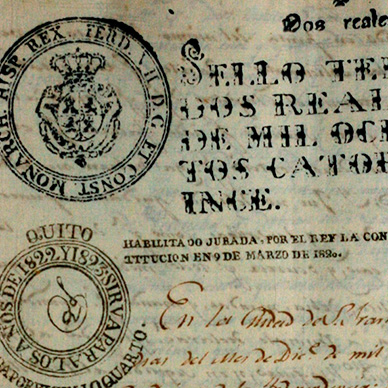 Dos reale
HISP. REX. FERD. VII. D. G. ET CONST. MONARCH.
SELLO TER
DOS REAL
DE MIL OCH
TOS CATOR
INCE.
HABILITADO JURADA, POR EL REY LA CON
TITUCION EN 9 DE MARZO DE 1820.
QUITO
SIRVA PARA LOS AÑOS DE 1822. Y 1823
QUARTO.
En la Ciudad de S. Fran
dias del mes de Dic.e de mil